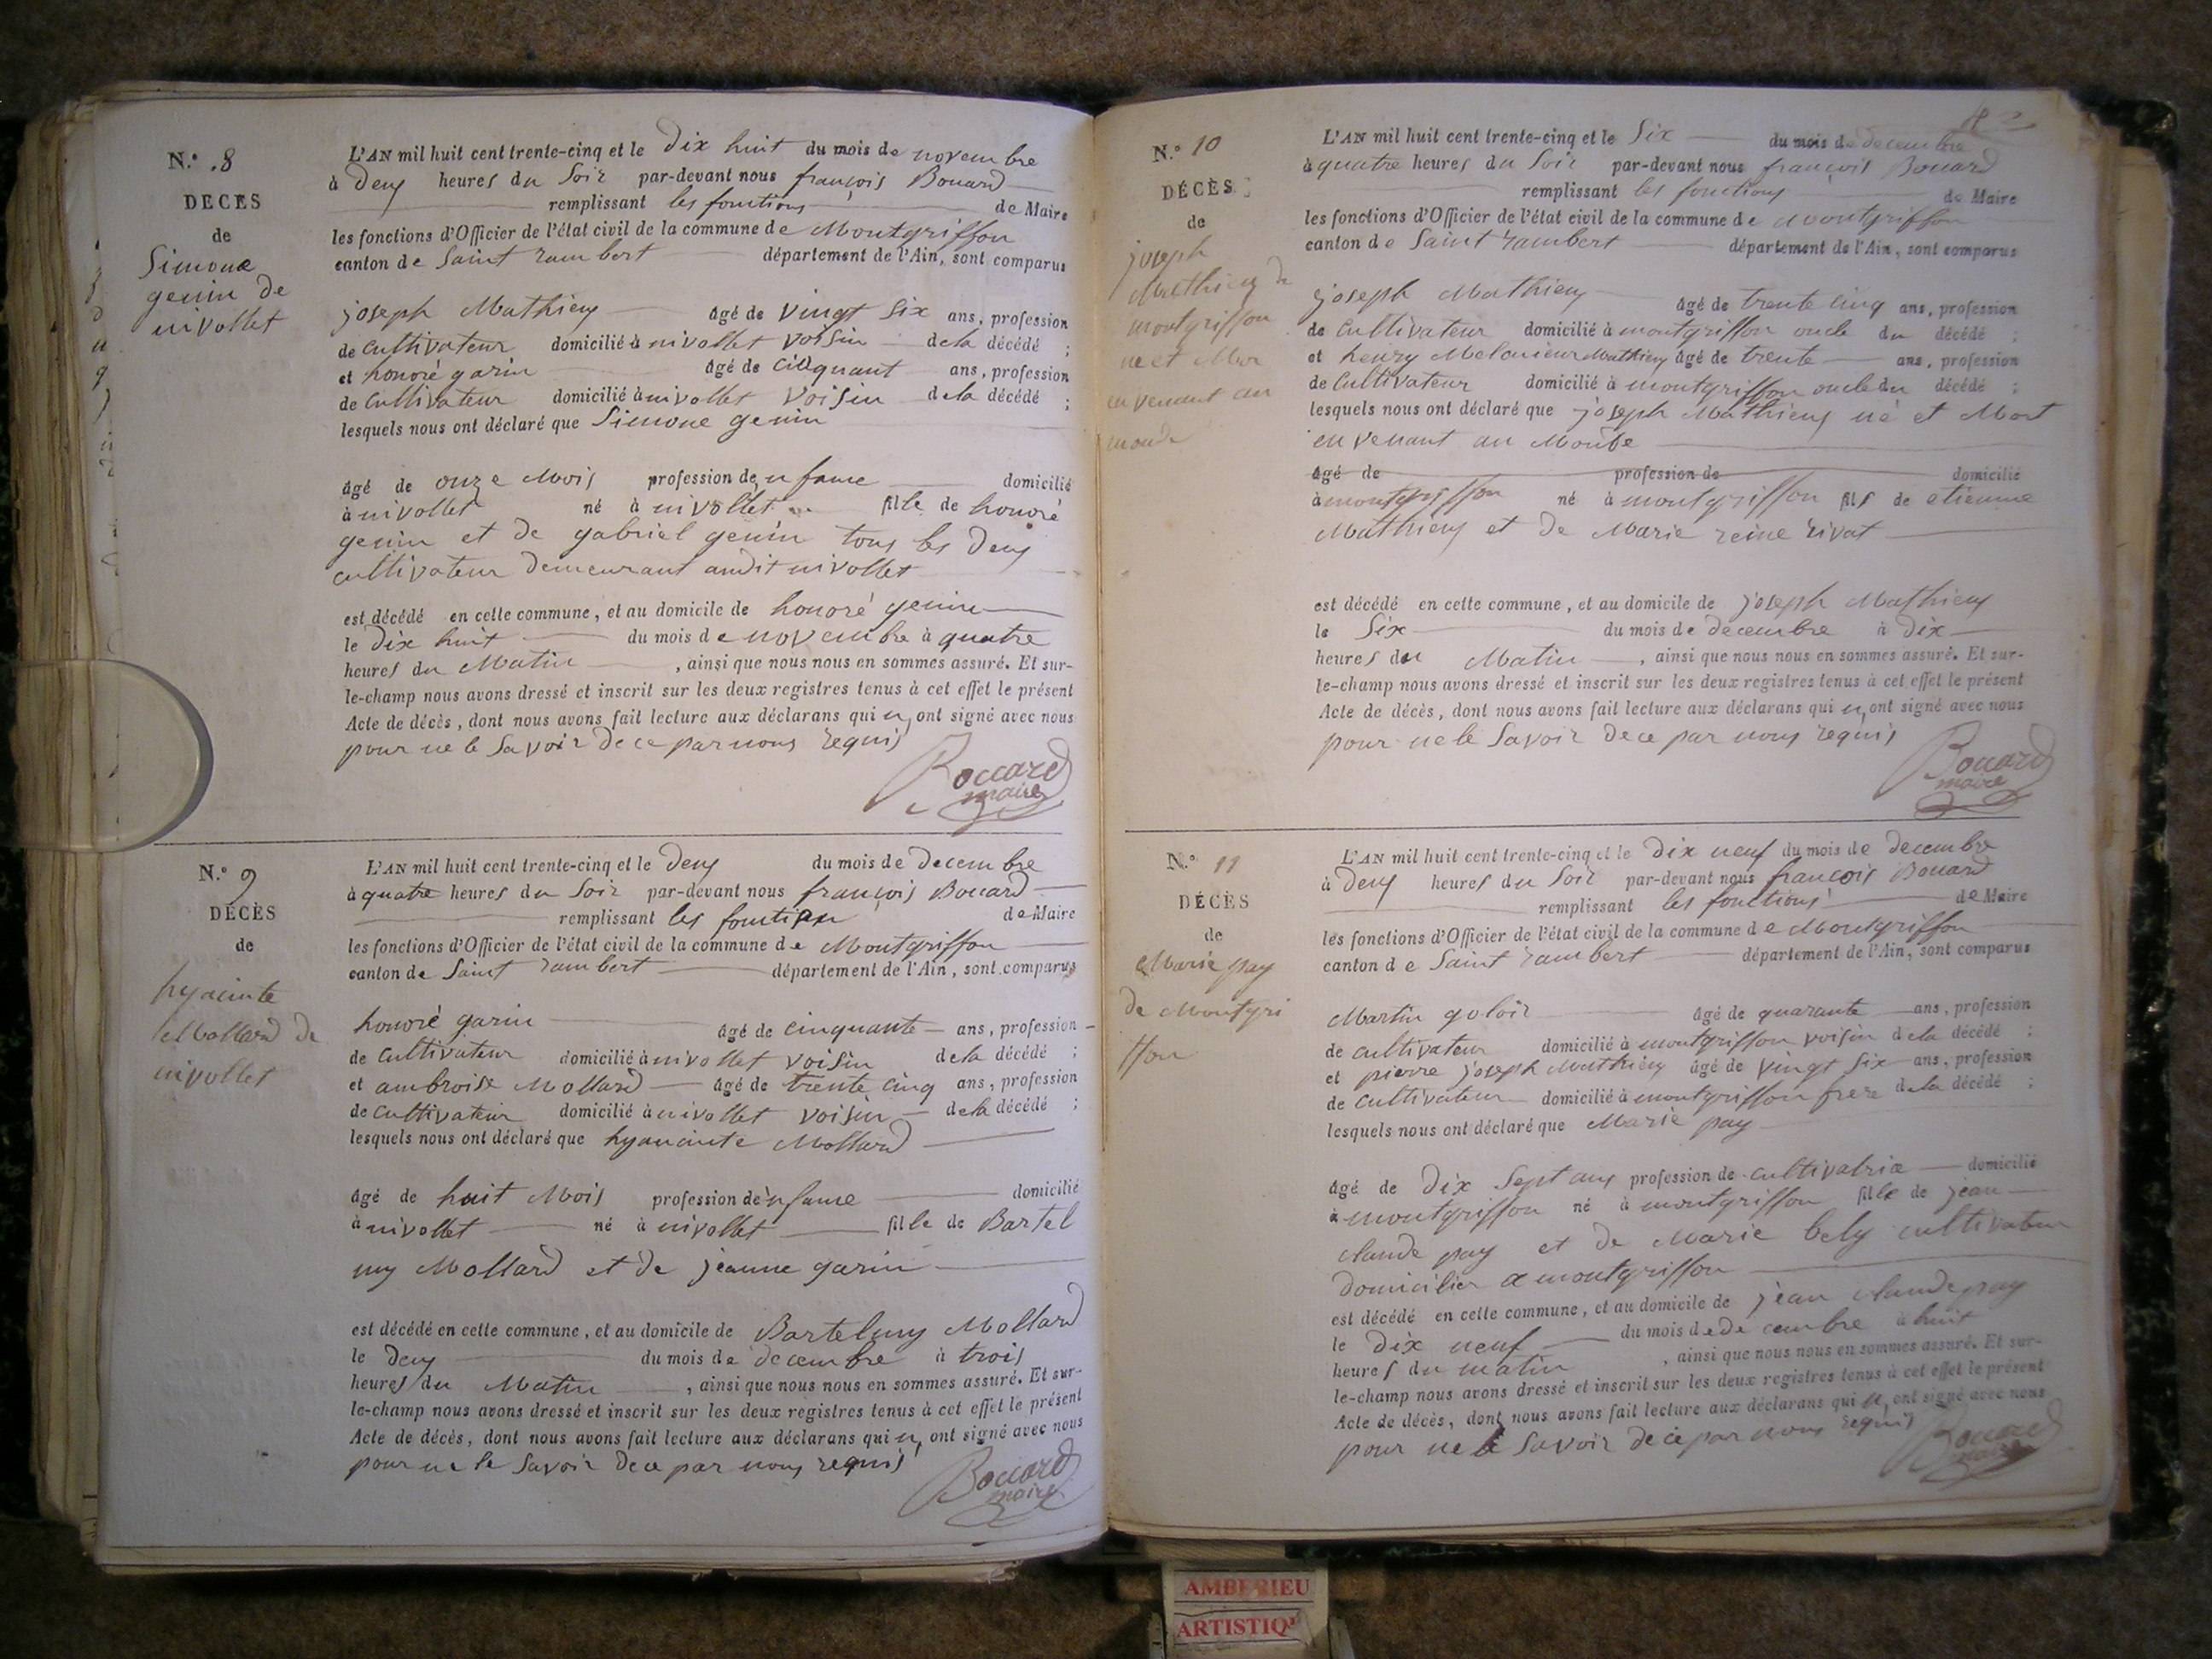 N.° 8
DECÈS
de
Simone
genin de
nivollet
L'AN mil huit cent trente-cinq et le Dix huit du mois de novembre
à Deux heures du Soir par-devant nous françois Bouard
remplissant les fonctions de Maire
les fonctions d'Officier de l'état civil de la commune de Montgriffon
canton de Saint rambert département de l'Ain, sont comparus
joseph Mathieu âgé de vingt Six ans, profession
de cultivateur domicilié à nivollet voisin de la décédé ;
et honoré garin âgé de cinquant ans, profession
de cultivateur domicilié à nivollet voisin de la décédé ;
lesquels nous ont déclaré que Simone genin
âgé de onze Mois profession de domicilié
à nivollet né à nivollet fille de honoré
genin et de gabriel genin tous les Deux
cultivateur Demeurant audit nivollet
est décédé en cette commune, et au domicile de honoré genin
le Dix huit du mois de novembre à quatre
heures du Matin, ainsi que nous nous en sommes assuré. Et sur-
le-champ nous avons dressé et inscrit sur les deux registres tenus à cet effet le présent
Acte de décès, dont nous avons fait lecture aux déclarans qui n'ont signé avec nous
pour ne le Savoir De ce par nous requis
Bouard
maire
N.° 9
DÉCÈS
de
hyacinte
Mollard de
nivollet
L'AN mil huit cent trente-cinq et le Deux du mois de Decembre
à quatre heures du Soir par-devant nous françois Bouard
remplissant les fonction de Maire
les fonctions d'Officier de l'état civil de la commune de Montgriffon
canton de Saint rambert département de l'Ain, sont comparus
honoré garin âgé de cinquante ans, profession
de cultivateur domicilié à nivollet voisin de la décédé ;
et ambroise Mollard âgé de trente cinq ans, profession
de cultivateur domicilié à nivollet voisin de la décédé ;
lesquels nous ont déclaré que hyancinte Mollard
âgé de huit Mois profession de domicilié
à nivollet né à nivollet fille de Bartel
my Mollard et de jeanne garin
est décédé en cette commune, et au domicile de Bartelmy Mollard
le Deux du mois de Decembre à trois
heures du Matin, ainsi que nous nous en sommes assuré. Et sur-
le-champ nous avons dressé et inscrit sur les deux registres tenus à cet effet le présent
Acte de décès, dont nous avons fait lecture aux déclarans qui n'ont signé avec nous
pour ne le Savoir De ce par nous requis
Bouard
maire
N.° 10
DÉCÈS
de
joseph
Mathieu de
montgriffon
né et Mor
en venant au
monde
L'AN mil huit cent trente-cinq et le Six du mois de decembre
à quatre heures du Soir par-devant nous françois Bouard
remplissant les fonctions de Maire
les fonctions d'Officier de l'état civil de la commune de Montgriffon
canton de Saint rambert département de l'Ain, sont comparus
joseph Mathieu âgé de trente cinq ans, profession
de cultivateur domicilié à montgriffon oncle du décédé ;
et henry Mathieu âgé de trente ans, profession
de cultivateur domicilié à montgriffon oncle du décédé ;
lesquels nous ont déclaré que joseph Mathieu né et Mort
en venant au Monde
âgé de profession de domicilié
à montgriffon né à montgriffon fils de etienne
Mathieu et de Marie reine rivat
est décédé en cette commune, et au domicile de joseph Mathieu
le Six du mois de Decembre à Dix
heures du Matin, ainsi que nous nous en sommes assuré. Et sur-
le-champ nous avons dressé et inscrit sur les deux registres tenus à cet effet le présent
Acte de décès, dont nous avons fait lecture aux déclarans qui n'ont signé avec nous
pour ne le Savoir De ce par nous requis
Bouard
maire
N.° 11
DÉCÈS
de
Marie pay
de Montgri
ffon
L'AN mil huit cent trente-cinq et le Dix neuf du mois de decembre
à Deux heures du Soir par-devant nous françois Bouard
remplissant les fonctions de Maire
les fonctions d'Officier de l'état civil de la commune de Montgriffon
canton de Saint rambert département de l'Ain, sont comparus
Martin goloir âgé de quarante ans, profession
de cultivateur domicilié à montgriffon voisin de la décédé ;
et pierre joseph Mathieu âgé de vingt Six ans, profession
de cultivateur domicilié à montgriffon frere de la décédé ;
lesquels nous ont déclaré que Marie pay
âgé de Dix Sept ans profession de cultivatrice domicilié
à montgriffon né à montgriffon fille de jean
claude pay et de Marie bely cultivateur
domicilier a montgriffon
est décédé en cette commune, et au domicile de jean claude pay
le Dix neuf du mois de Decembre à huit
heures du matin, ainsi que nous nous en sommes assuré. Et sur-
le-champ nous avons dressé et inscrit sur les deux registres tenus à cet effet le présent
Acte de décès, dont nous avons fait lecture aux déclarans qui n'ont signé avec nous
pour ne le Savoir De ce par nous requis
Bouard
maire
AMBERIEU
ARTISTIQ